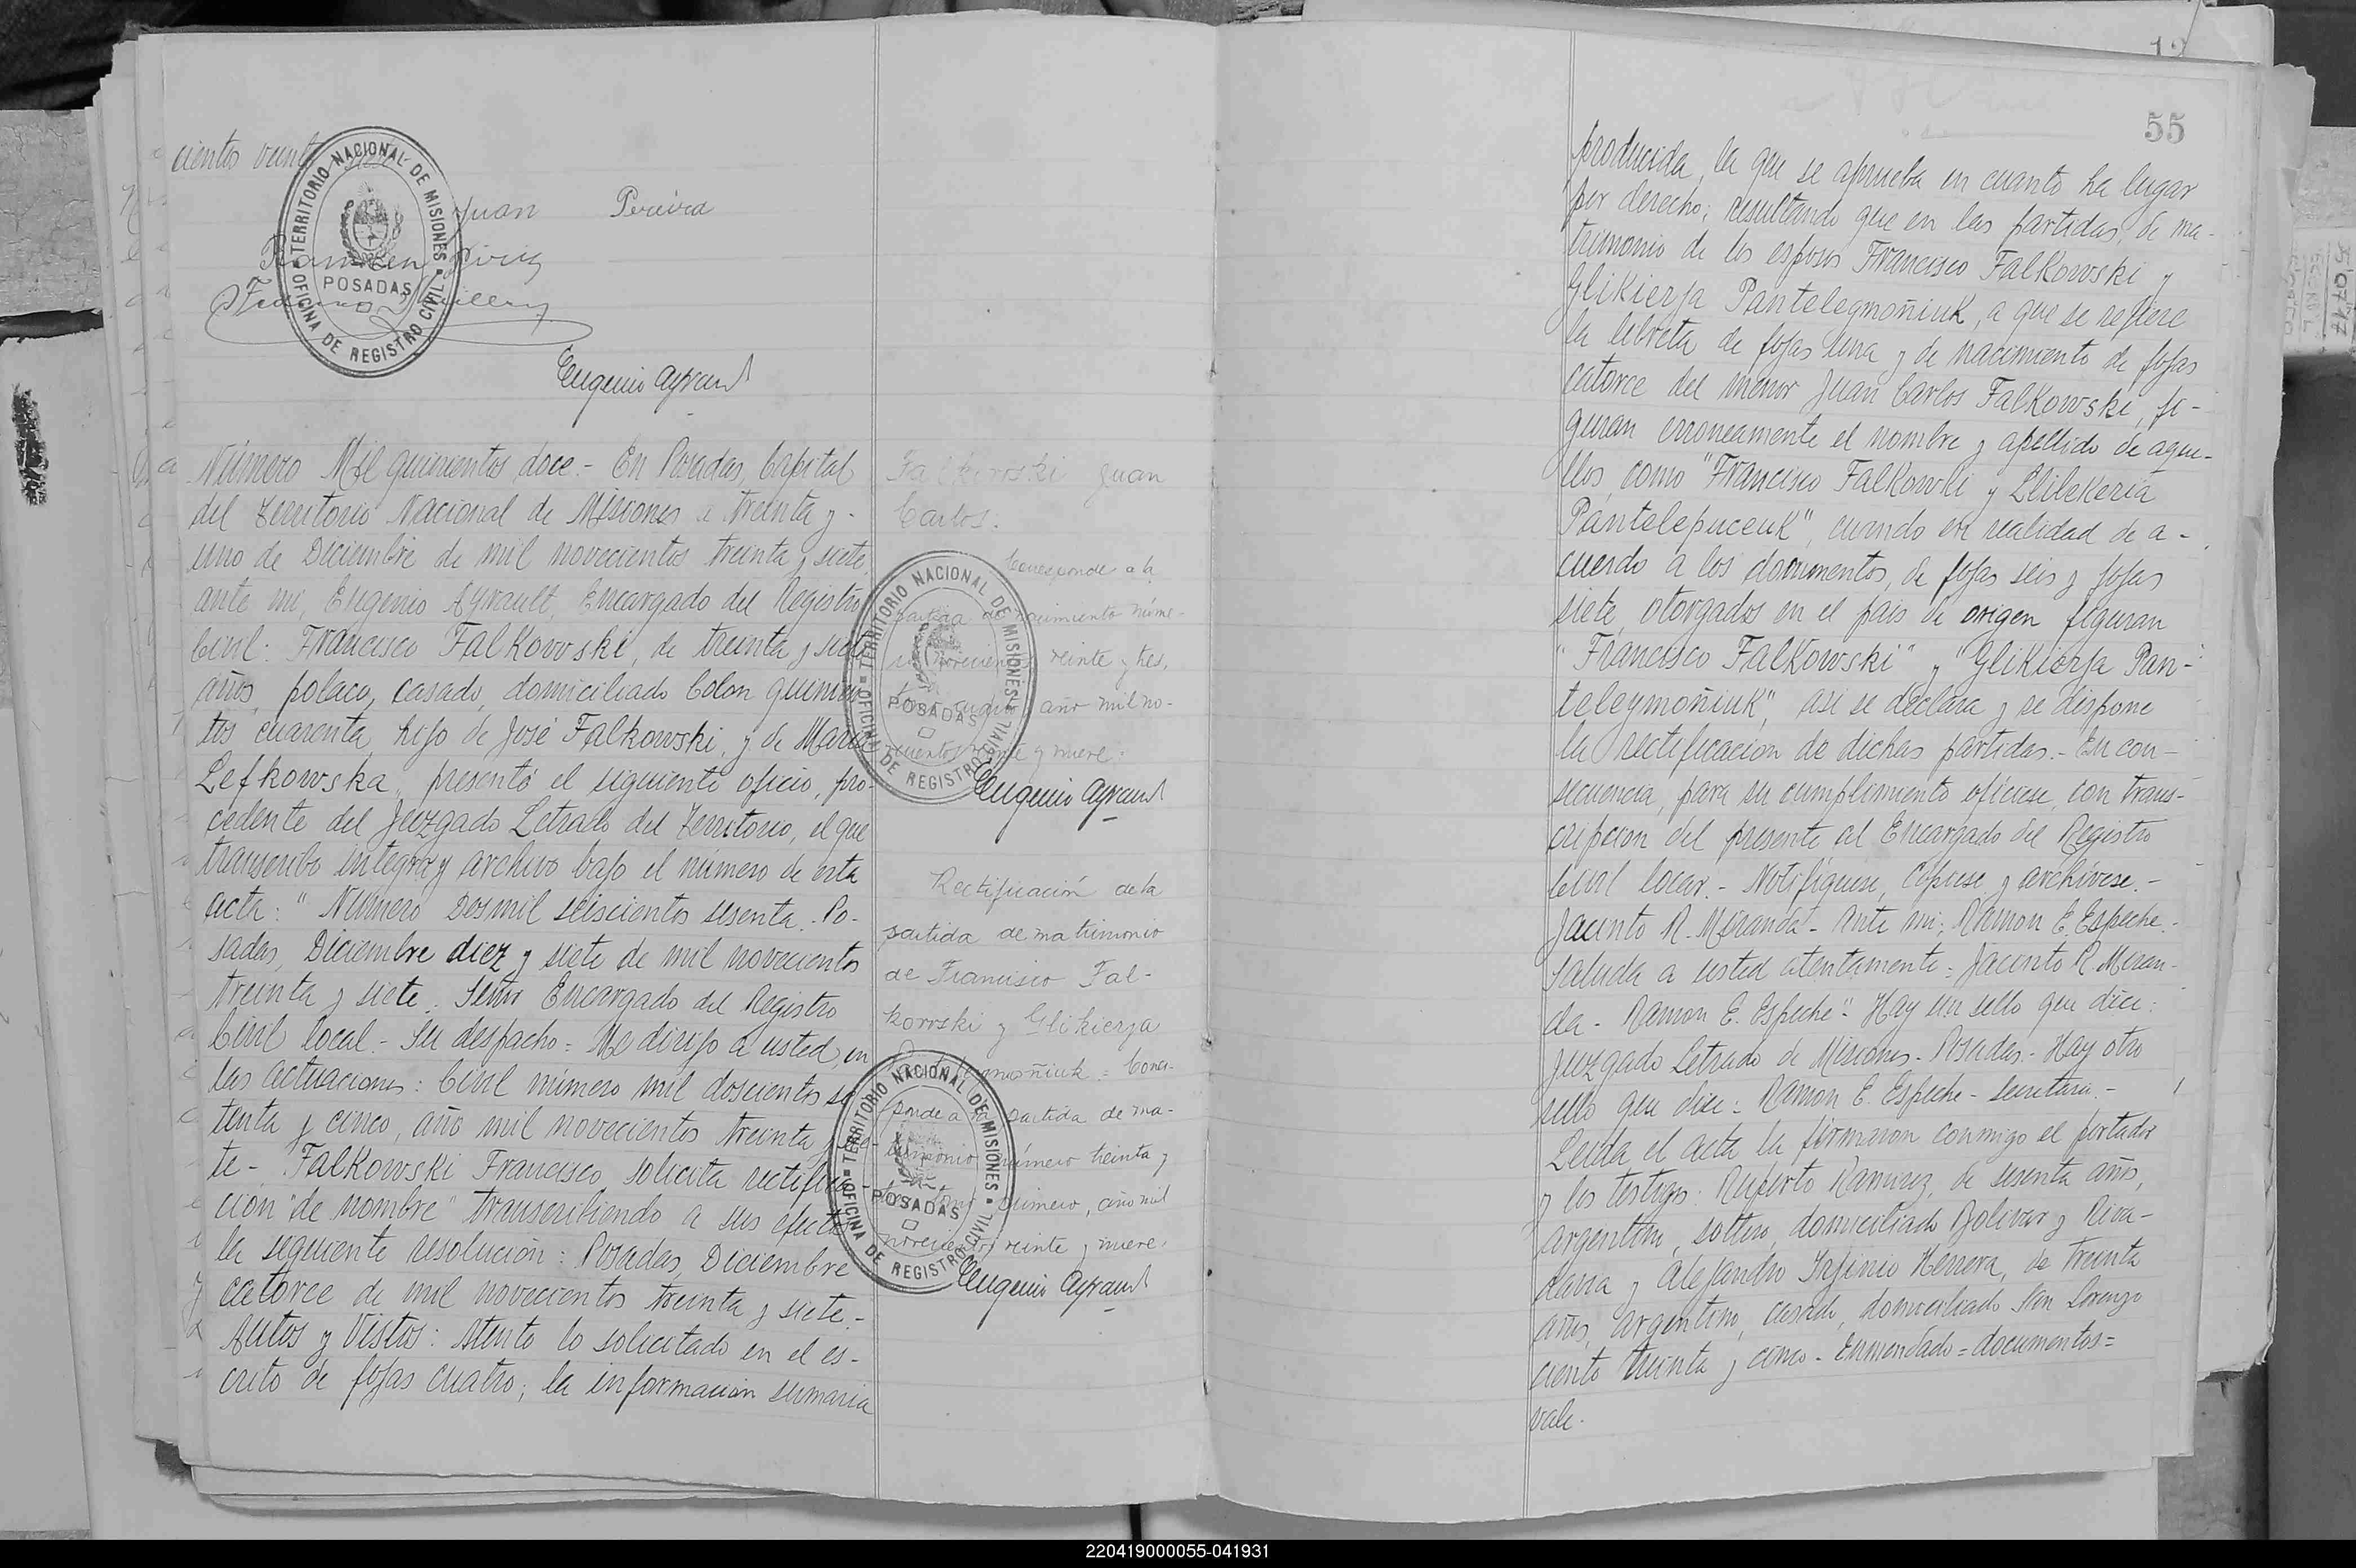 cientos veinte
Juan Pereira
Eugenio Ayrault
TERRITORIO NACIONAL DE MISIONES
POSADAS
OFICINA DE REGISTRO CIVIL
Número Mil quinientos doce.- En Posadas, Capital
del Territorio Nacional de Misiones a treinta y-
uno de Diciembre de mil novecientos treinta y siete,
ante mi, Eugenio Ayrault, Encargado del Registro
Civil: Francisco Falkowski, de treinta y siete
años, polaco, casado, domiciliado Colon quinien
tos cuarenta, hijo de José Falkowski, y de Maria
Lefkowska, presentó el siguiente oficio, pro-
cedente del Juzgado Letrado del Territorio, el que
transcribo integro y archivo bajo el número de esta
acta: "Número Dosmil seiscientos sesenta. Po-
sadas, Diciembre diez y siete de mil novecientos
treinta y siete. Señor Encargado del Registro
Civil local.- Su despacho= Me dirijo a usted, en
las actuaciones: Civil número mil doscientos se
tenta y cinco, año mil novecientos treinta y sie-
te- Falkowski Francisco, solicita rectifica-
ción "de nombre" transcribiendo a sus efectos
la siguiente resolución: Posadas, Diciembre
catorce de mil novecientos treinta y siete.-
Autos y Vistos: Atento lo solicitado en el es-
crito de fojas cuatro; la información sumaria
Falkowski Juan
Carlos:
Corresponde a la
partida de nacimiento núme-
ro novecientos veinte y tres,
tomo cuarto, año mil no-
vecientos veinte y nueve:
Eugenio Ayrault
TERRITORIO NACIONAL DE MISIONES
POSADAS
OFICINA DE REGISTRO CIVIL
Rectificación de la
partida de matrimonio
de Francisco Fal-
kowski y Glikierja
= Corres-
ponde a la partida de ma-
trimonio número treinta y
tomo primero, año mil
novecientos veinte y nueve.
Eugenio Ayrault
TERRITORIO NACIONAL DE MISIONES
POSADAS
OFICINA DE REGISTRO CIVIL
55
producida, la que se aprueba en cuanto ha lugar
por derecho; resultando que en las partidas, de ma-
trimonio de los esposos Francisco Falkowski y
Glikierja Pantelegmoñiuk, a que se refiere
la libreta de fojas una y de nacimiento de fojas
catorce del menor Juan Carlos Falkowski, fi-
guran erroneamente el nombre y apellido de aque-
llos, como "Francisco Falkowki y Llilekeria
Pantelepuceuk", cuando en realidad de a-
cuerdo a los documentos, de fojas seis y fojas
siete, otorgados en el pais de origen figuran
"Francisco Falkowski" y "Glikierja Pan-
telegmoñiuk", asi se declara y se dispone
la rectificación de dichas partidas.- En con-
secuencia, para su cumplimiento ofíciese, con trans-
cripcion del presente al Encargado del Registro
Civil local.- Notifíquese, cópiese y archívese.-
Jacinto R. Miranda- Ante mi: Ramon E. Espeche.-
Saluda a usted atentamente= Jacinto R. Miran-
da- Ramon E. Espeche".- Hay un sello que dice:
Juzgado Letrado de Misiones- Posadas- Hay otro
sello que dice: Ramon E. Espeche- Secretario.-
Leida el acta la firmaron conmigo el portador
y los testigos: Ruperto Ramirez, de sesenta años,
argentino, soltero, domiciliado Bolivar y Riva-
davia y Alejandro Irfinio Herrera, de treinta
años, argentino, casado, domiciliado San Lorenzo
ciento treinta y cinco- Enmendado=documentos=
vale.
220419000055-041931